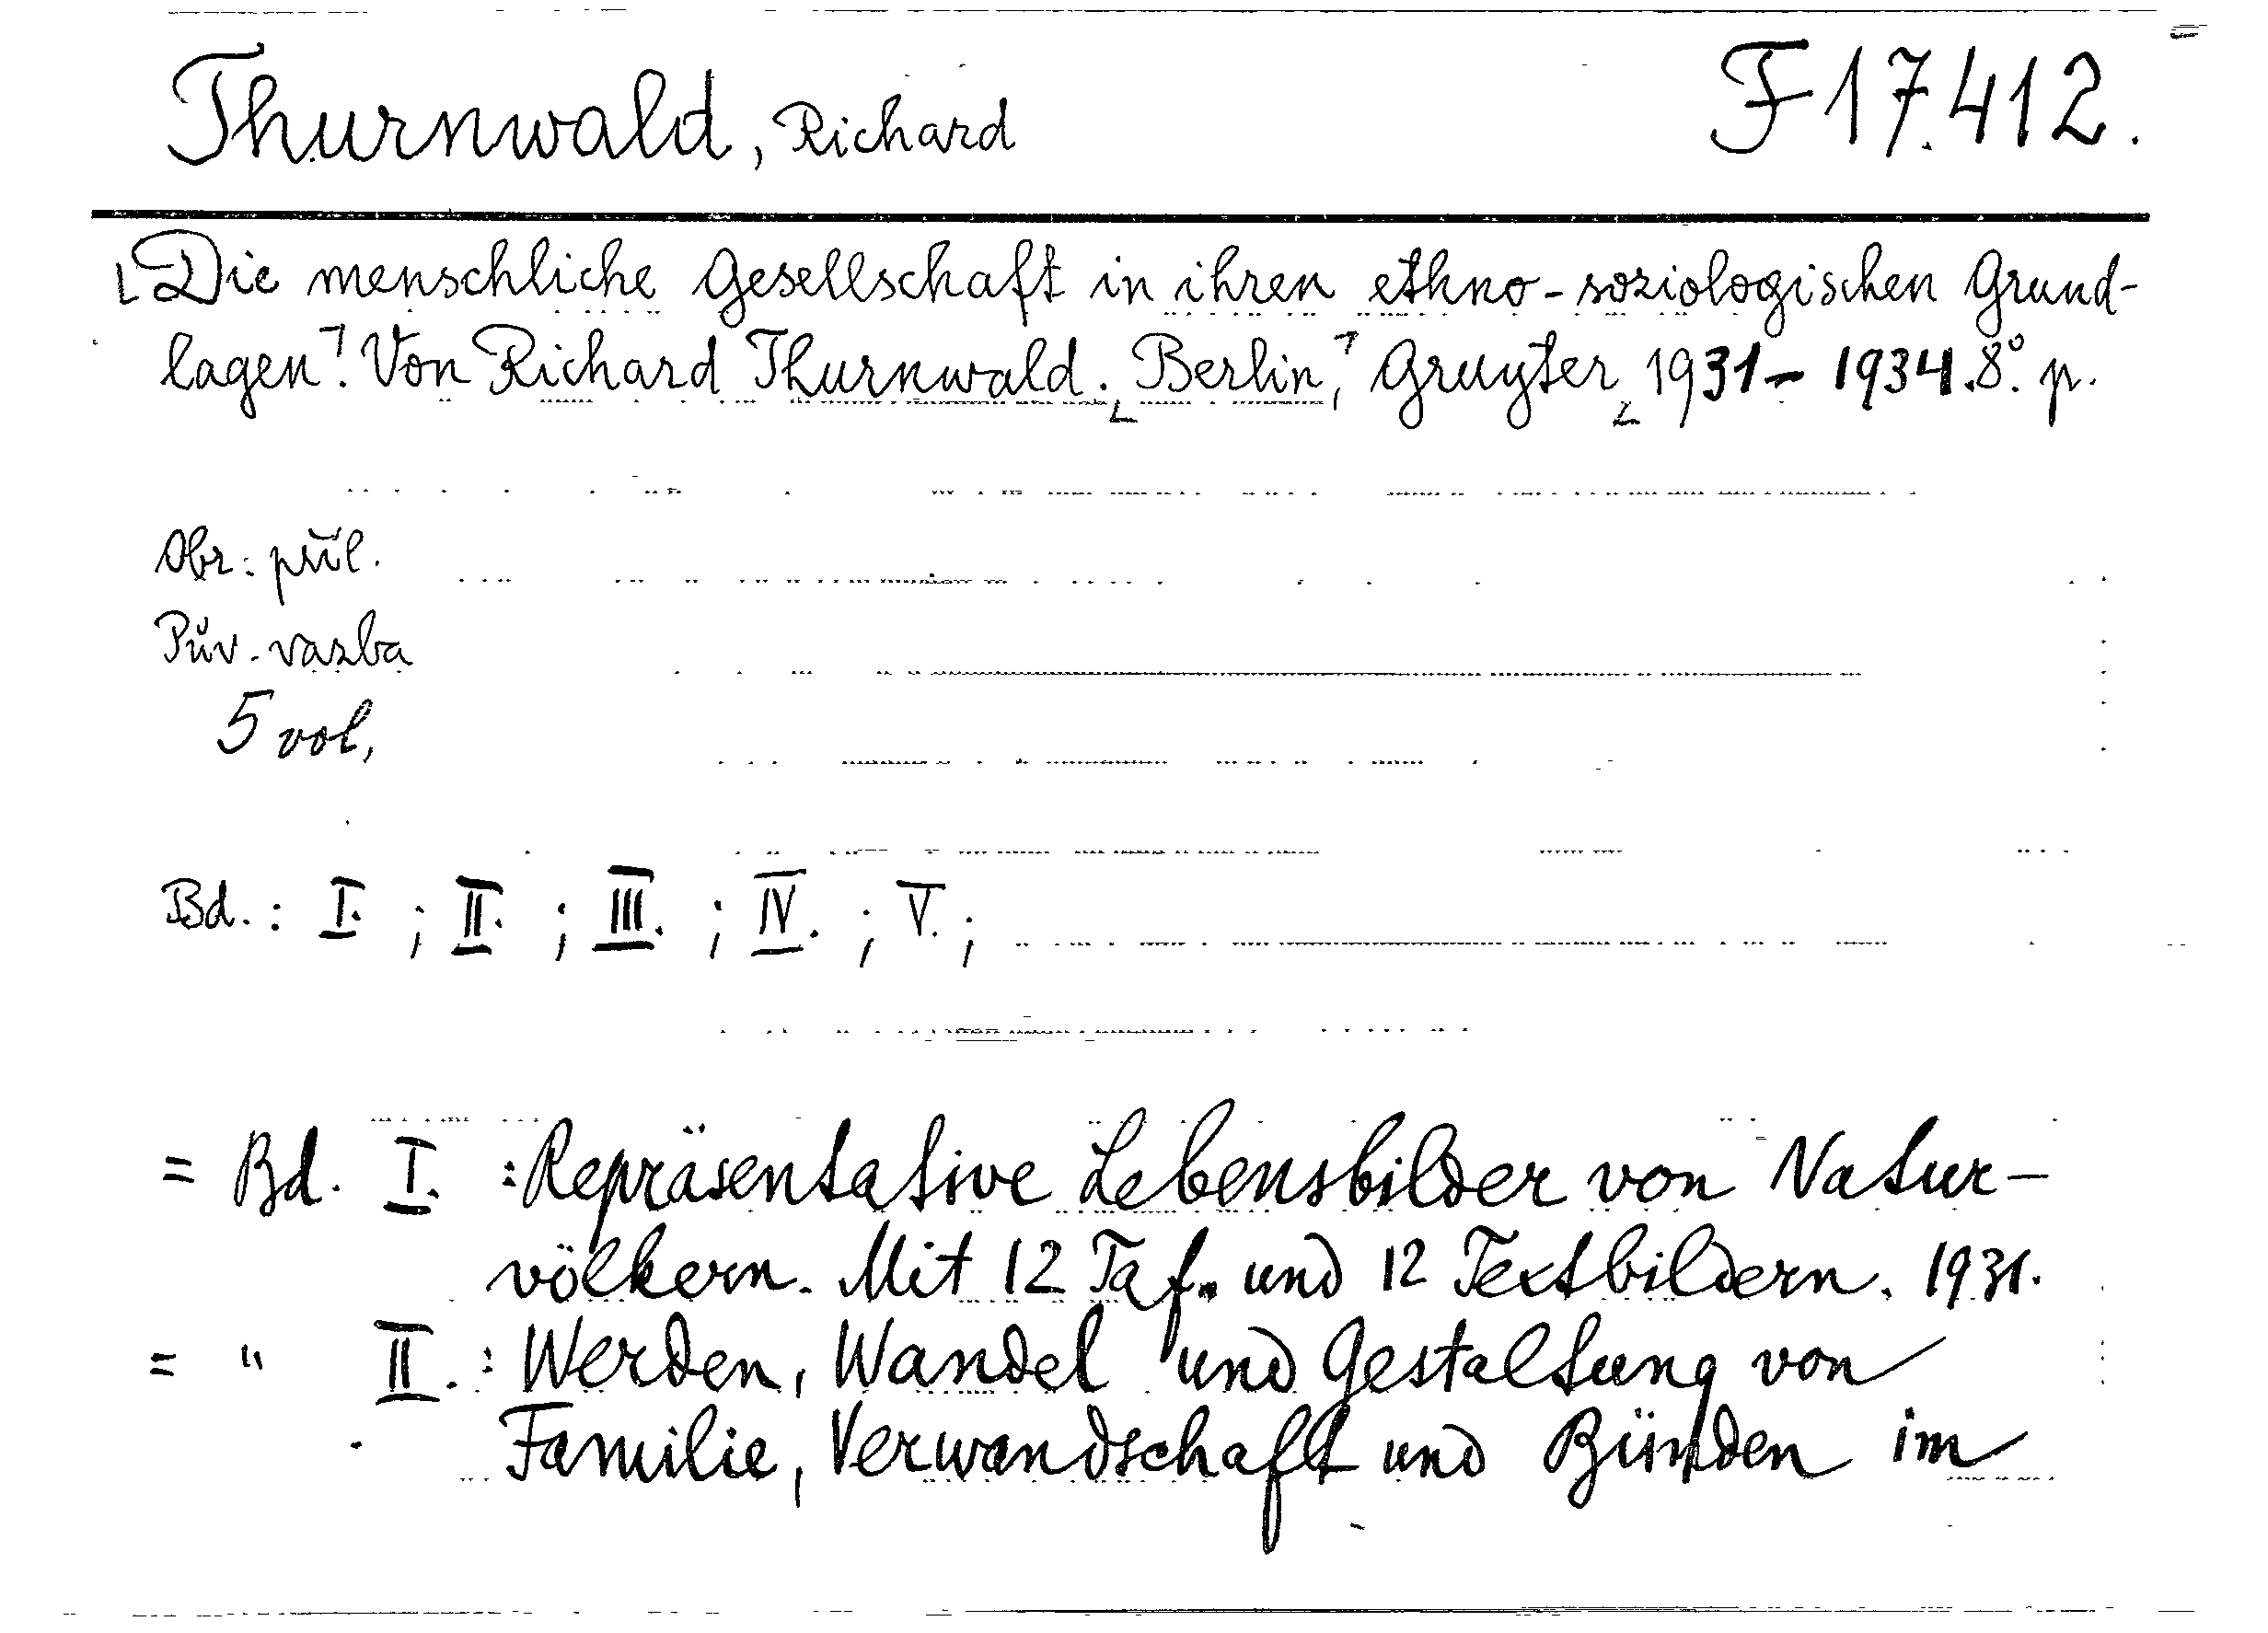 Thurnwald, Richard F 17.412.
Die menschliche Gesellschaft in ihren ethno-soziologischen Grund-
lagen. Von Richard Thurnwald. Berlin, Gruyter 1931-1934. 8°. p.
Obr. příl.
Pův. vazba
5 vol,
Bd.: I. ; II. ; III. ; IV. ; V. ;
= Bd. I. : Repräsentative Lebensbilder von Natur-
völkern. Mit 12 Taf. und 12 Textbildern. 1931.
= " II. : Werden, Wandel und Gestaltung von
Familie, Verwandschaft und Bünden im